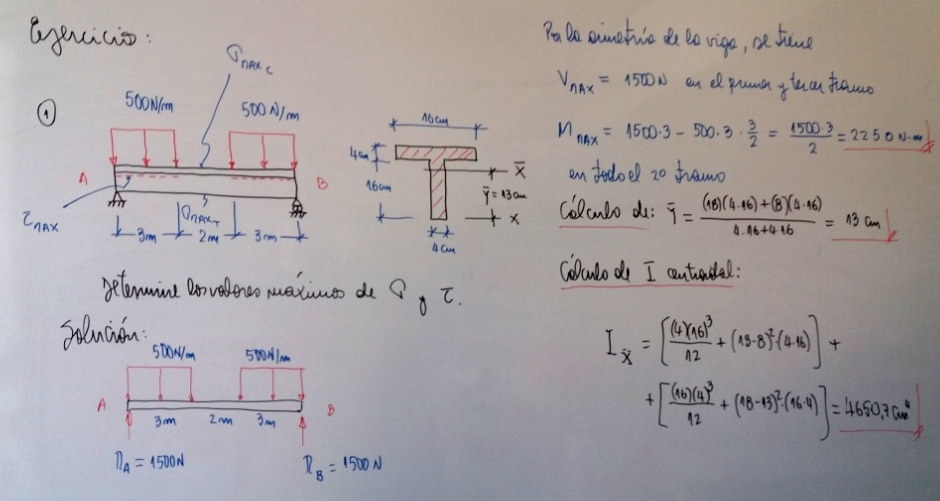 Ejercicio:
①
σ MAX C
500 N/m 500 N/m
A B
τ MAX
σ MAX T
3m 2m 3m
16cm
4cm
16cm
X̄
Ȳ = 13cm
X
4cm
Determine los valores máximos de σ y τ.
Solución:
500N/m 500N/m
A B
3m 2m 3m
R_A = 1500N R_B = 1500N
Por la simetría de la viga, se tiene
V_MAX = 1500N en el primer y tercer tramo
M_MAX = 1500·3 − 500·3·3/2 = 1500·3/2 = 2250 N·m
en todo el 2º tramo
Cálculo de: Ȳ = (18)(4·16)+(8)(4·16) / 4·16+4·16 = 13 cm
Cálculo de I centroidal:
I_X̄ = [(4)(16)³/12 + (13-8)²·(4·16)] +
+ [(16)(4)³/12 + (18-13)²·(16·4)] = 4650,7 cm⁴